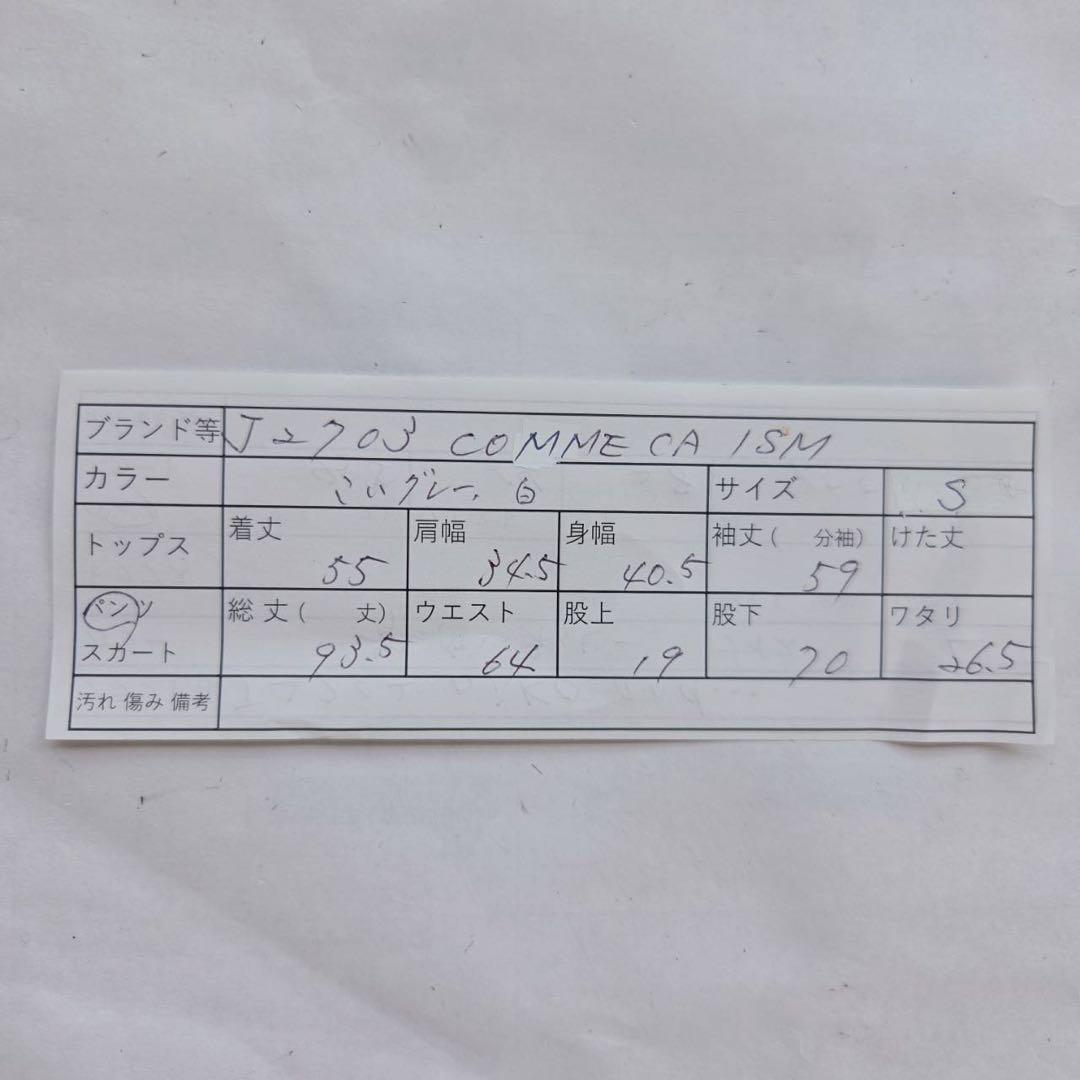 ブランド等 J2703 COMME CA ISM
カラー こいグレー、白 サイズ S
トップス 着丈 55 肩幅 34.5 身幅 40.5 袖丈( 分袖) 59 けた丈
パンツ スカート 総丈( 丈) 93.5 ウエスト 64 股上 19 股下 70 ワタリ 26.5
汚れ 傷み 備考